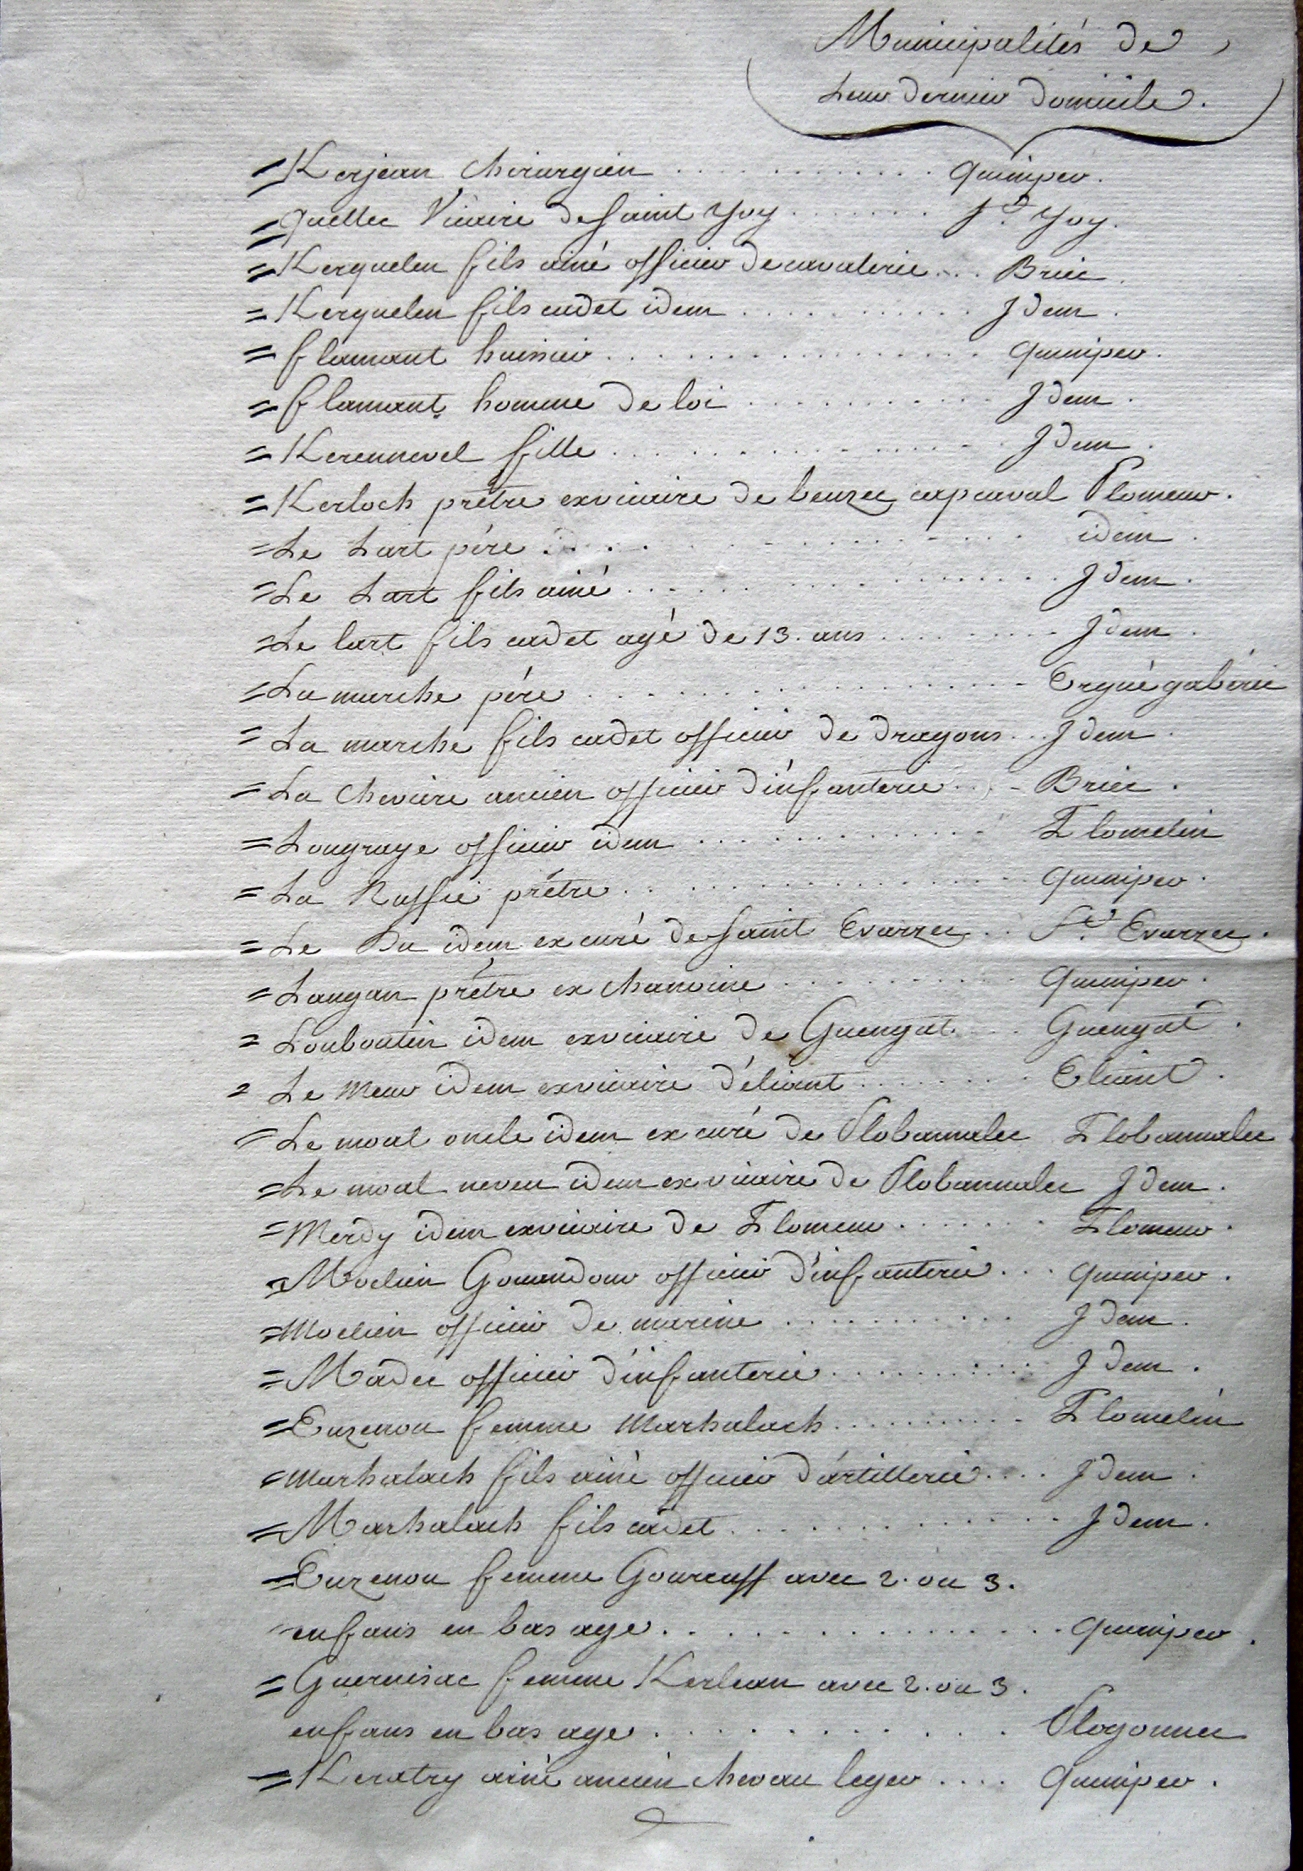 Municipalités de
Leur dernier domicile.
= Kerjean chirurgien . . . . . . . . . . . . quimper.
= quettec Vicaire de saint yvy . . . . . . . St. yvy.
= Kerguelen fils ainé officier de cavalerie . . . Briec.
= Kerguelen fils cadet idem . . . . . . . . . . . Idem.
= flamant huissier . . . . . . . . . . . . . . . . quimper.
= flamant homme de loi . . . . . . . . . . . Idem.
= Kerennevel fille . . . . . . . . . . . . . . . Idem.
= Kerloch prêtre exvicaire de beuzec capcaval Plomeur.
= Le Lart pére . . . . . . . . . . . . . . idem.
= Le Lart fils ainé . . . . . . . . . . . . . . Idem.
= Le lart fils cadet agé de 13. ans . . . . . . . . . Idem.
= La marche pére . . . . . . . . . . . . . . . . . . Ergué gabéric
= La marche fils cadet officier de dragons . . . Idem.
= La Cheviere ancien officier d'infanterie . . . Briec.
= Longraye officier idem . . . . . . . . . . . . Plomelin
= La Ruffie prêtre . . . . . . . . . . . . . . . . quimper.
= Le Du idem ex curé de saint Evarzec . . St. Evarzec.
= Laugan prêtre ex chanoine . . . . . . . . . quimper.
= Louboutin idem exvicaire de Guengat . . . Guengat.
= Le meur idem exvicaire d'éliant . . . . . . . . Eliant.
= Le moal oncle idem ex curé de Plobannalec Plobannalec
= Le moal neveu idem ex vicaire de Plobannalec Idem.
= Merdy idem exvicaire de Plomeur . . . . . . . Plomeur.
= Moëlien Gouandour officier d'infanterie . . . quimper.
= Moelien officier de marine . . . . . . . . . . . Idem.
= Madec officier d'infanterie . . . . . . . . . . Idem.
= Euzenou femme Marhalach . . . . . . . . . . Plomelin
= Marhalach fils ainé officier d'artillerie . . . . Idem.
= Marhalach fils cadet . . . . . . . . . . . . . . Idem.
= Euzenou femme Gourcuff avec 2. ou 3.
enfans en bas age . . . . . . . . . . . . . . . . . quimper.
= Guernisac femme Kerlean avec 2. ou 3.
enfans en bas age . . . . . . . . . . . . . . Plogonnec
= Keratry ainé ancien chevau leger . . . . quimper.